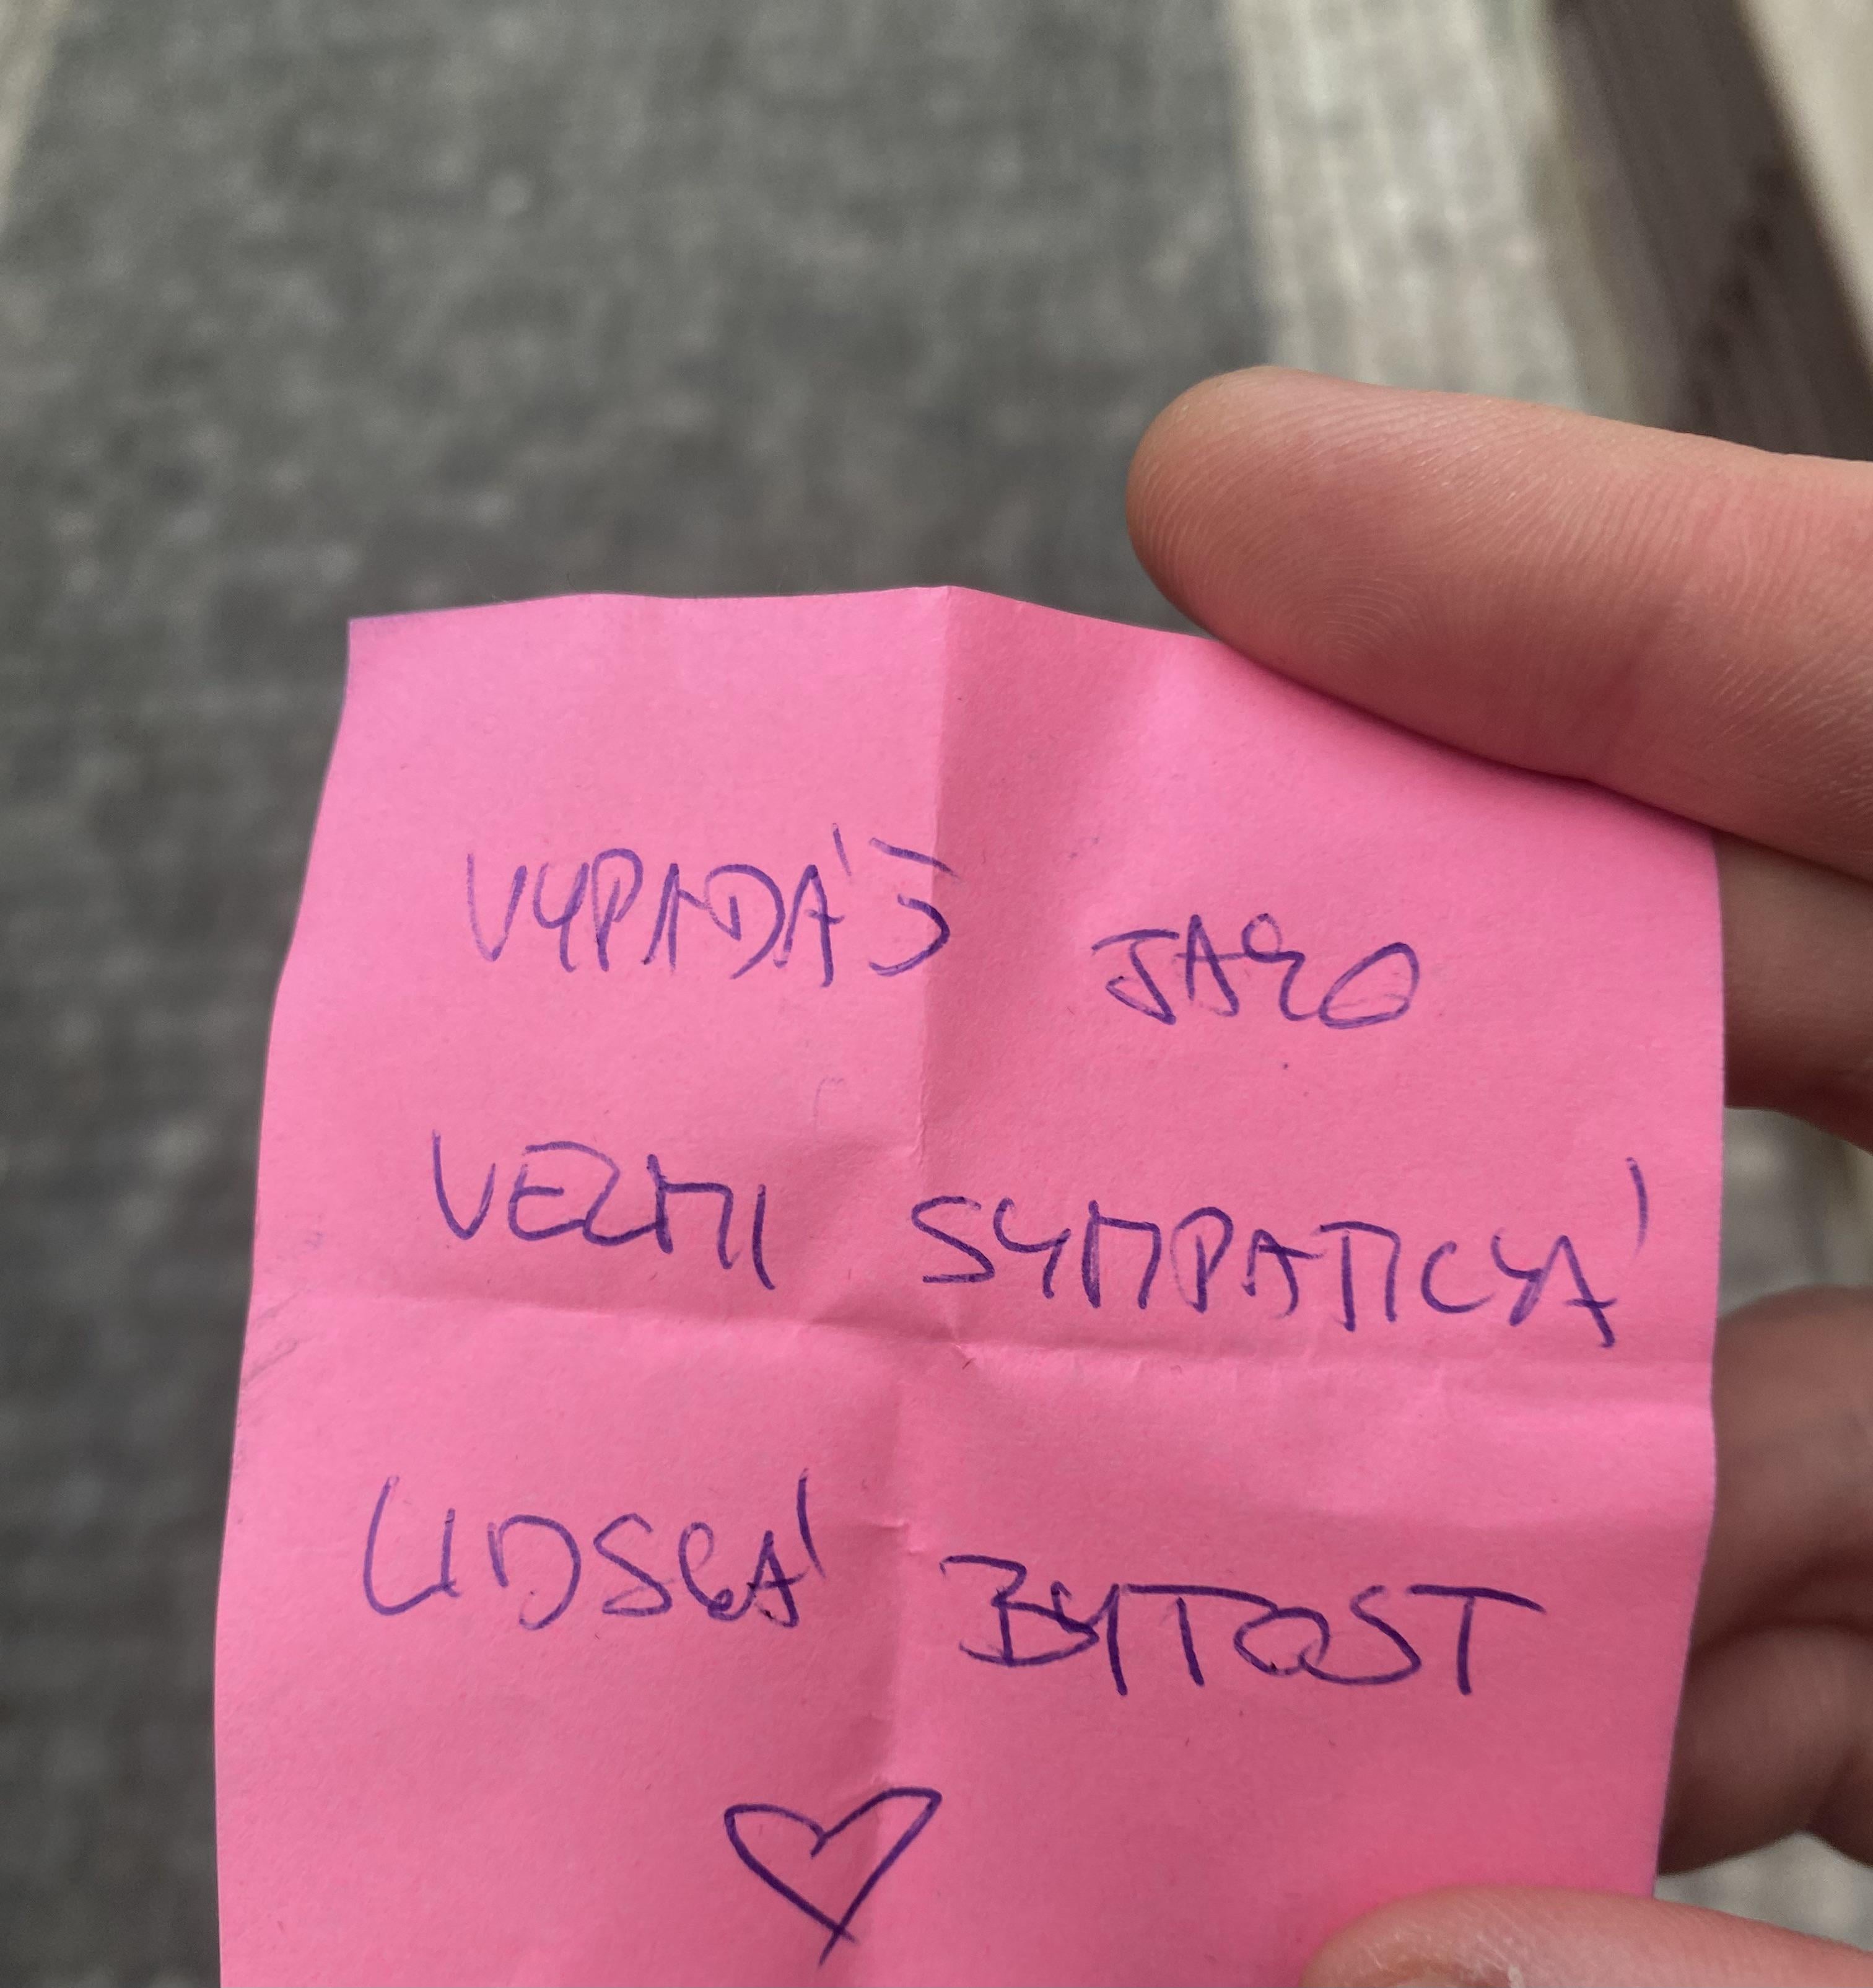 VYPADÁŠ JAKO
VELMI SYMPATICKÁ
LIDSKÁ BYTOST